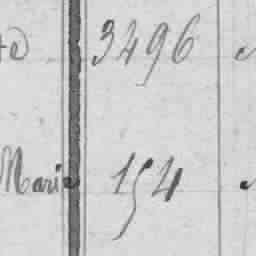 3496
Marie 154